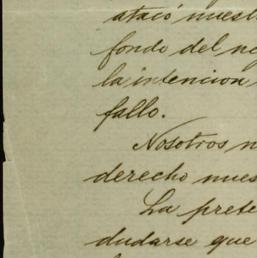 atacó nuest
fondo del ne
la intencion
fallo.
Nosotros n
derecho nues
La prete
dudarse que